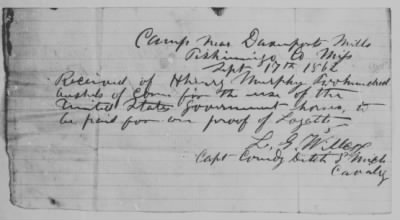 Camp Near Davenport Mills
Tishimingo Co Miss
Sept 17th 1862
Received of Henry Murphy Two hundred
bushels of Corn for the use of the
United States Government horses, to
be paid for on proof of Loyalty
L. G.
Capt Comdg Detch 3 Mich
Cavalry